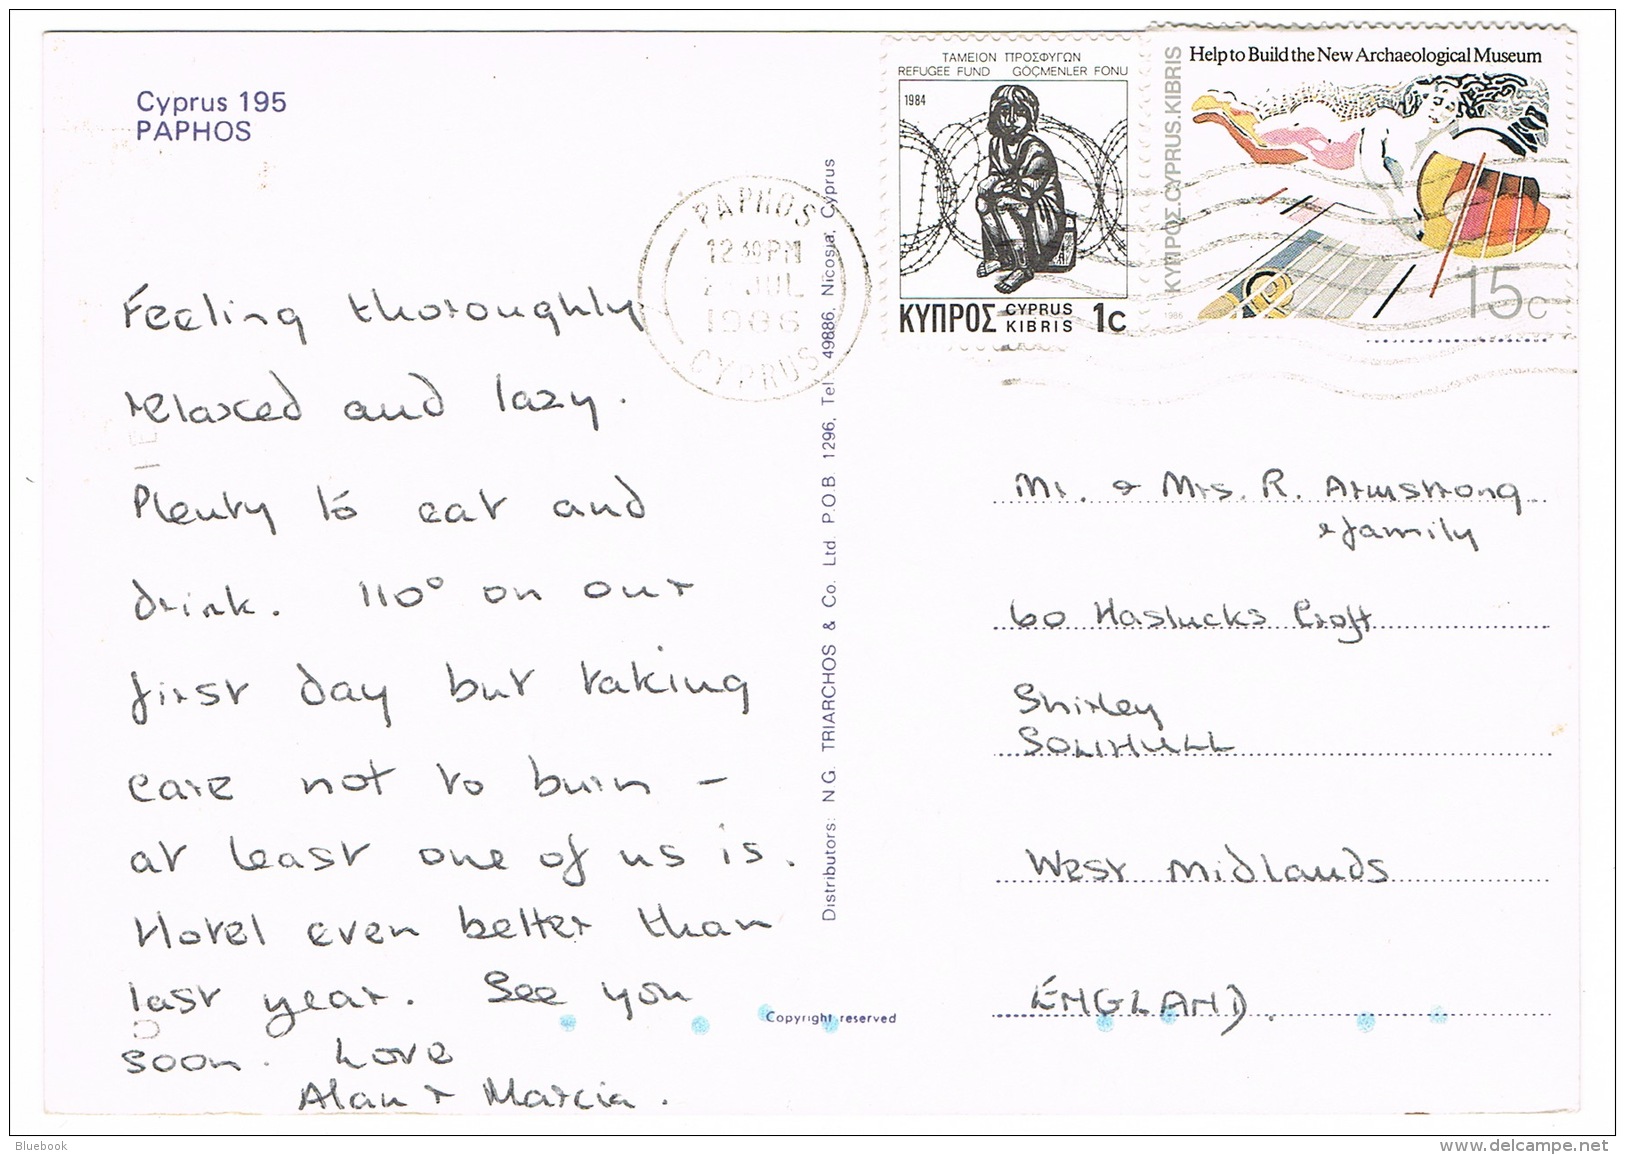 Cyprus 195
PAPHOS
Feeling thoroughly
relaxed and lazy.
Plenty to eat and
drink. 110° on our
first day but taking
care not to burn –
at least one of us is.
Hotel even better than
last year. See you
soon. Love
Alan & Marcia.
PAPHOS
12 30 PM
JUL
1986
CYPRUS
Distributors: N.G. TRIARCHOS & Co. Ltd. P.O.B. 1296, Tel. 49886, Nicosia, Cyprus
Copyright reserved
ΤΑΜΕΙΟΝ ΠΡΟΣΦΥΓΩΝ
REFUGEE FUND GÖÇMENLER FONU
1984
ΚΥΠΡΟΣ CYPRUS KIBRIS 1c
Help to Build the New Archaeological Museum
ΚΥΠΡΟΣ.CYPRUS.KIBRIS
1986
15c
Mr. & Mrs. R. Armstrong
& family
60 Haslucks Croft
Shirley
SOLIHULL
West Midlands
ENGLAND.
Bluebook
www.delcampe.net